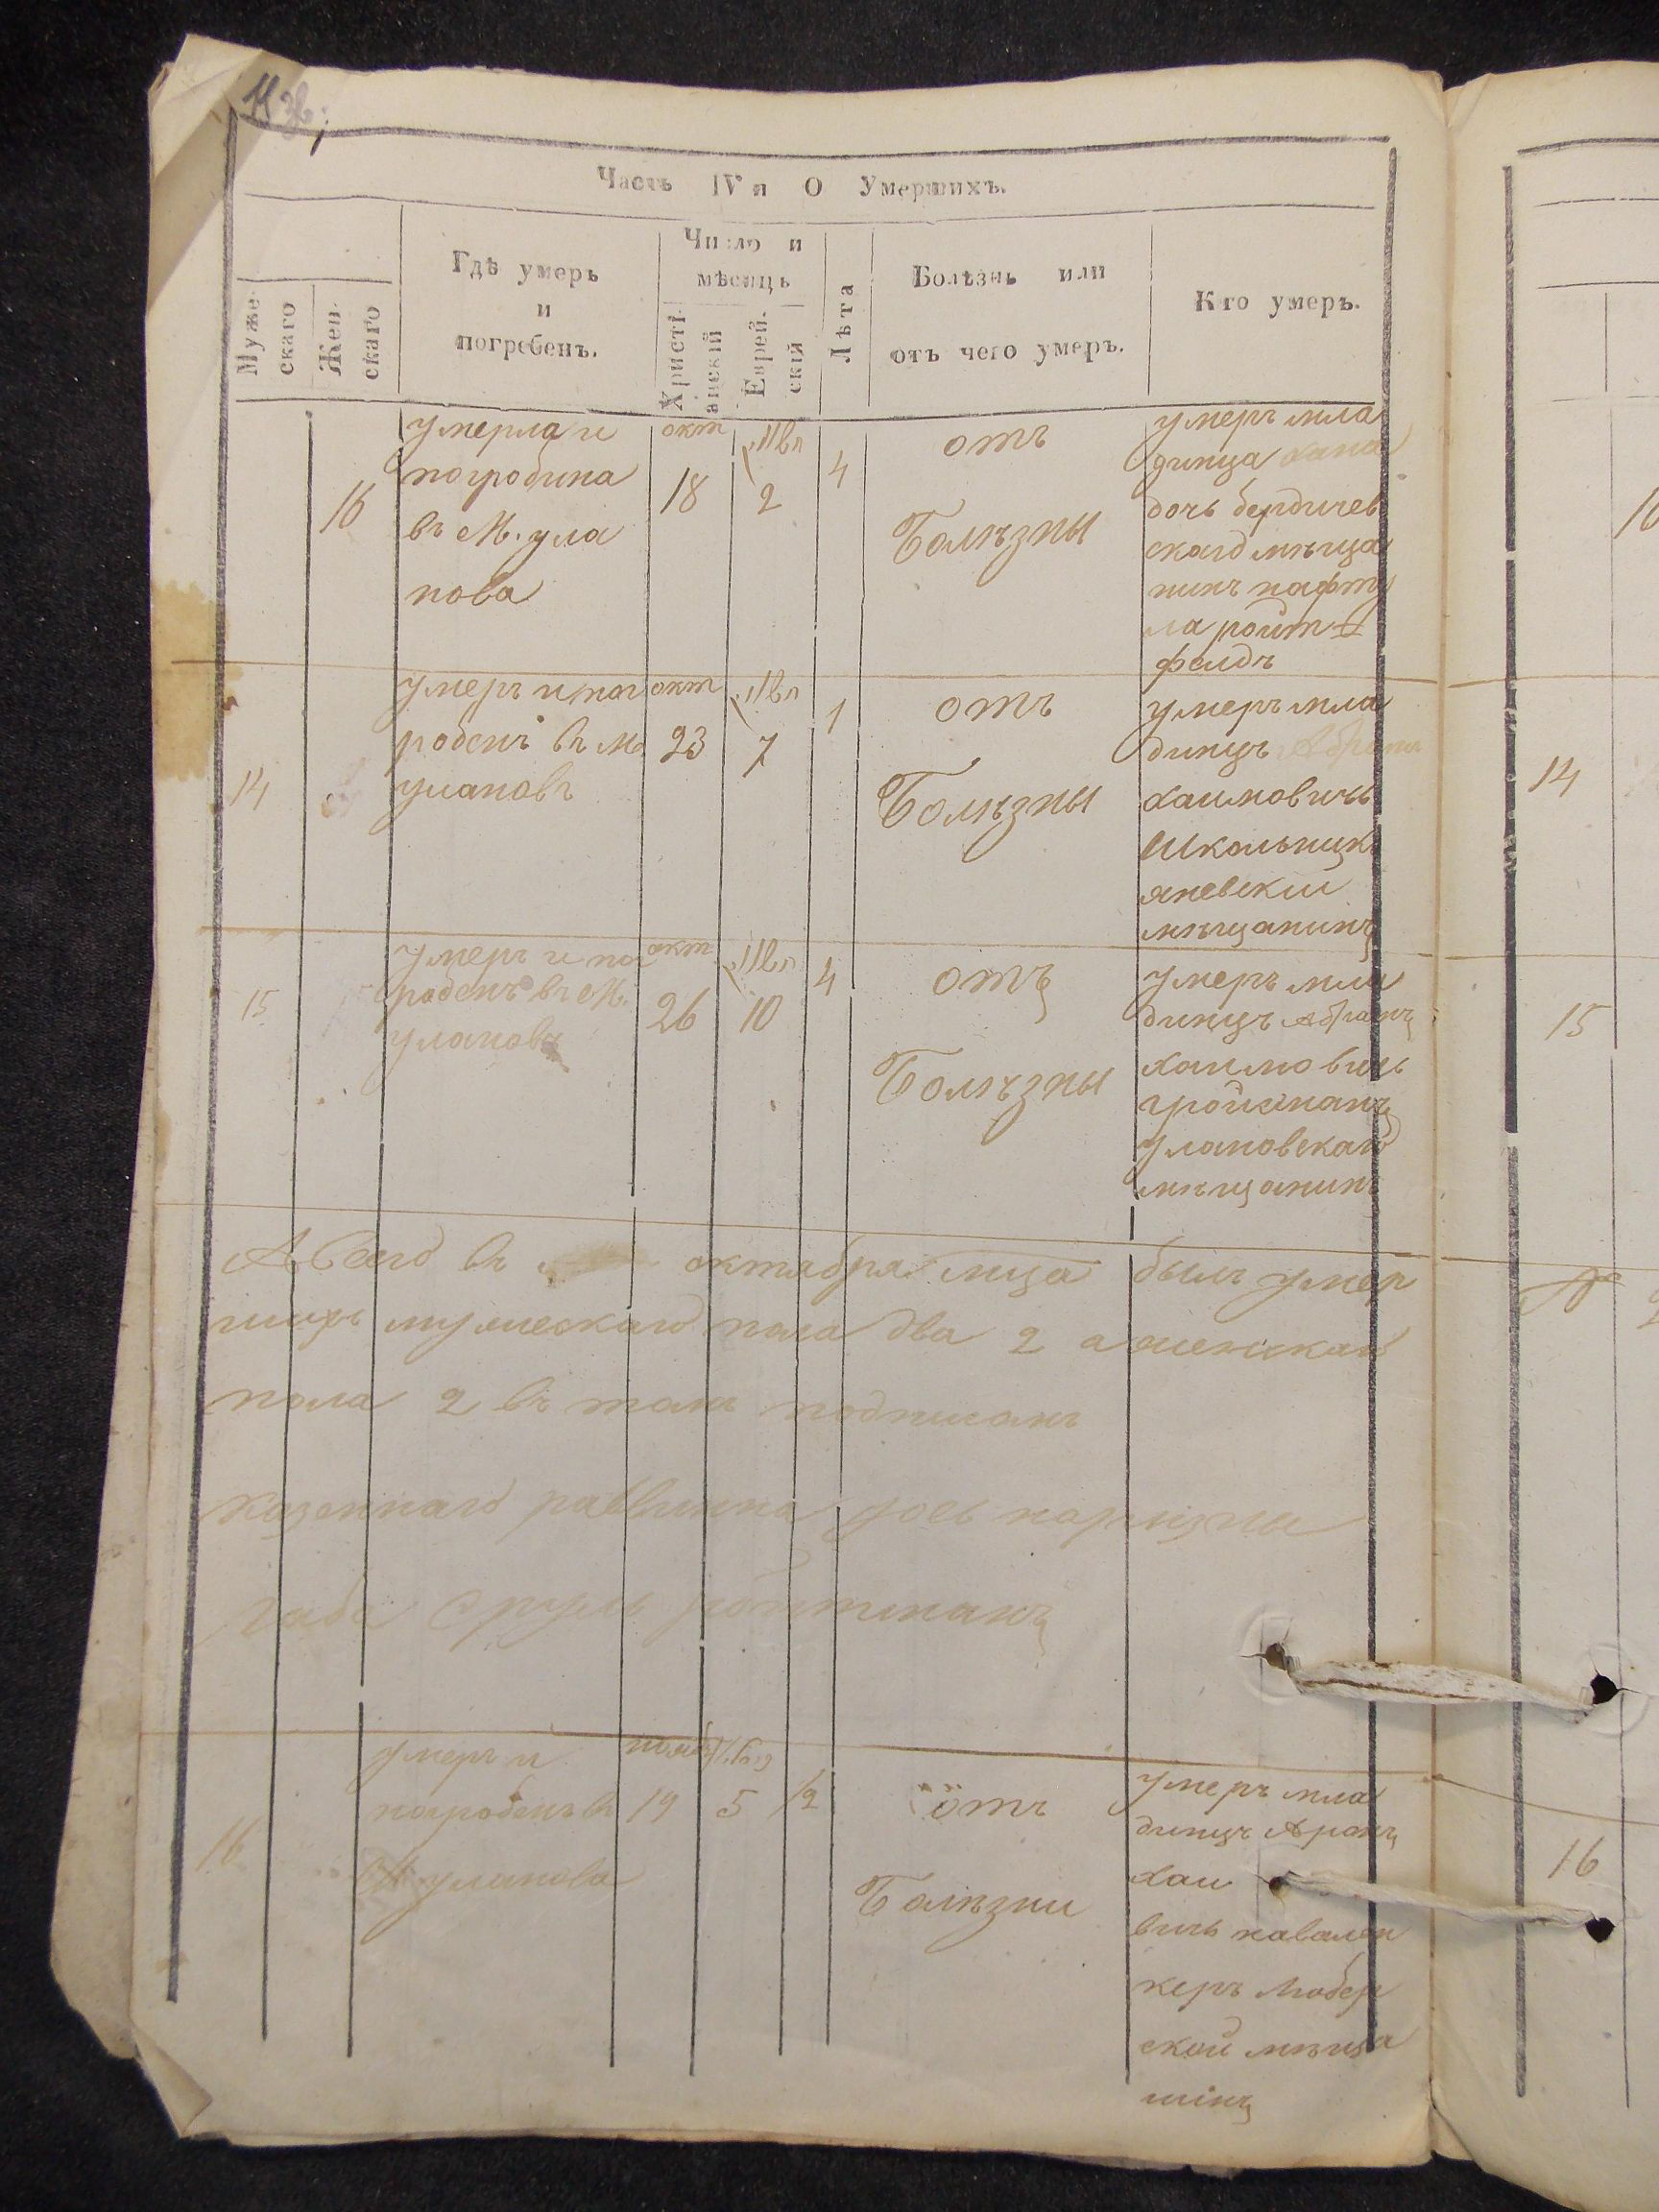 Часть IVя О Умершихъ.
Муже-
скаго
Жен-
скаго
Гдѣ умеръ
и
погребенъ.
Число и
мѣсяцъ
Христі-
анскій
Еврей-
скій
Лѣта
Болѣзнь или
отъ чего умеръ.
Кто умеръ.
16
умерла и
погробина
въ М. ула
нова
окт
18
2
4
отъ
Болѣзны
умеръ мла
динца хана
дочь бердичев
скаго мѣща
нинъ нафту
ла ройт
фелдъ
14
умеръ и пог
робенъ въ м.
улановъ
окт
23
7
1
отъ
Болѣзны
умеръ мла
динцъ Абрамъ
хаимовичь
школьникъ
яневскии
мѣщанинъ
15
умеръ и пог
робенъ въ М.
уланова
окт
26
10
4
отъ
Болѣзны
умеръ мла
динцъ Абрамъ
хаимовичь
гройсманъ
улановскаго
мѣщанинъ
А всего въ октабра мца былъ умер
шихъ мужескаго пола два 2 а женскаго
пола 2 въ томъ подписанъ
казеннаго раввина
габе Сруль ройтманъ
16
умеръ и
погробенъ въ
М. уланова
ноябр
19
5
1/2
отъ
Болѣзни
умеръ мла
динцъ Аронъ
хаи
вичь
керъ Любер
ской мѣща
нінъ
10
14
15
16